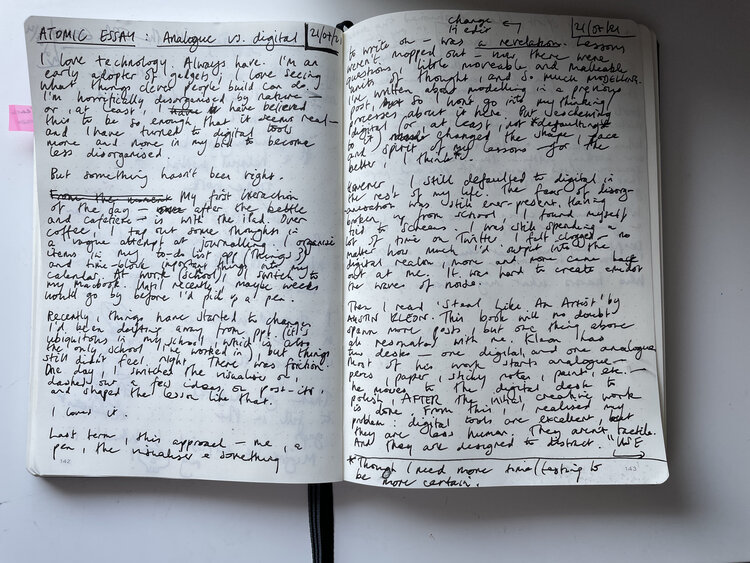 ATOMIC ESSAY: Analogue vs. digital
21/07/21
I love technology. Always have. I'm an
early adopter of gadgets; I love seeing
what things clever people build can do.
I'm horrifically disorganised by nature –
or, at least, I have believed
this to be so enough that it seems real –
and I have turned to digital tools
more and more in my bid to become
less disorganised.
But something hasn't been right.
From the moment My first interaction
of the day – after the kettle
and cafetière – is with the iPad. Over
coffee, I tap out some thoughts in
a vague attempt at journalling. I organise
items in my to-do list app (Things 3)
and time-block important things into my
Calendar. At work (school) I switch to
my Macbook. Until recently, maybe weeks
would go by before I'd pick up a pen.
Recently, things have started to change.
I'd been drifting away from ppt (it's
ubiquitous in my school, which is also
the only school I've worked in), but things
still didn't feel right. There was friction.
One day, I switched the visualiser on,
dashed out a few ideas, on post-its,
and shaped the lesson like that.
I loved it.
Last term, this approach – me, a
pen, the visualiser & something
142
change
in edit
21/07/21
to write on – was a revelation. Lessons
weren't mapped out – now there were
questions, little moveable and malleable
units of thought, and so much MODELLING.
I've written about modelling in a previous
post, so I won't go into my thinking
processes about it here. But eschewing
digital or at least, not defaulting
to it changed the shape, pace
and spirit of my lessons – for the
better, I think.*
However I still defaulted to digital in
the rest of my life. The fear of disorg-
anisation was still ever-present. Having
broken up from school, I found myself
tied to screens. I was still spending a
lot of time on Twitter. I felt clogged – no
matter how much I'd output into the
digital realm, more and more came back
out at me. It was hard to create amidst
the waves of noise.
Then I read 'Steal Like An Artist' by
AUSTIN KLEON. This book will no doubt
spawn more posts, but one thing above
all resonated with me. Kleon has
two desks – one digital, and one analogue.
Most of his work starts analogue –
pens, paper, sticky notes, paint, etc. –
he moves to the digital desk to
polish, AFTER the initial creative work
is done. From this, I realised my
problem: digital tools are excellent, but
they are less human. They aren't tactile.
And they are designed to distract. "WE
*Though I need more time/testing to
be more certain.
143